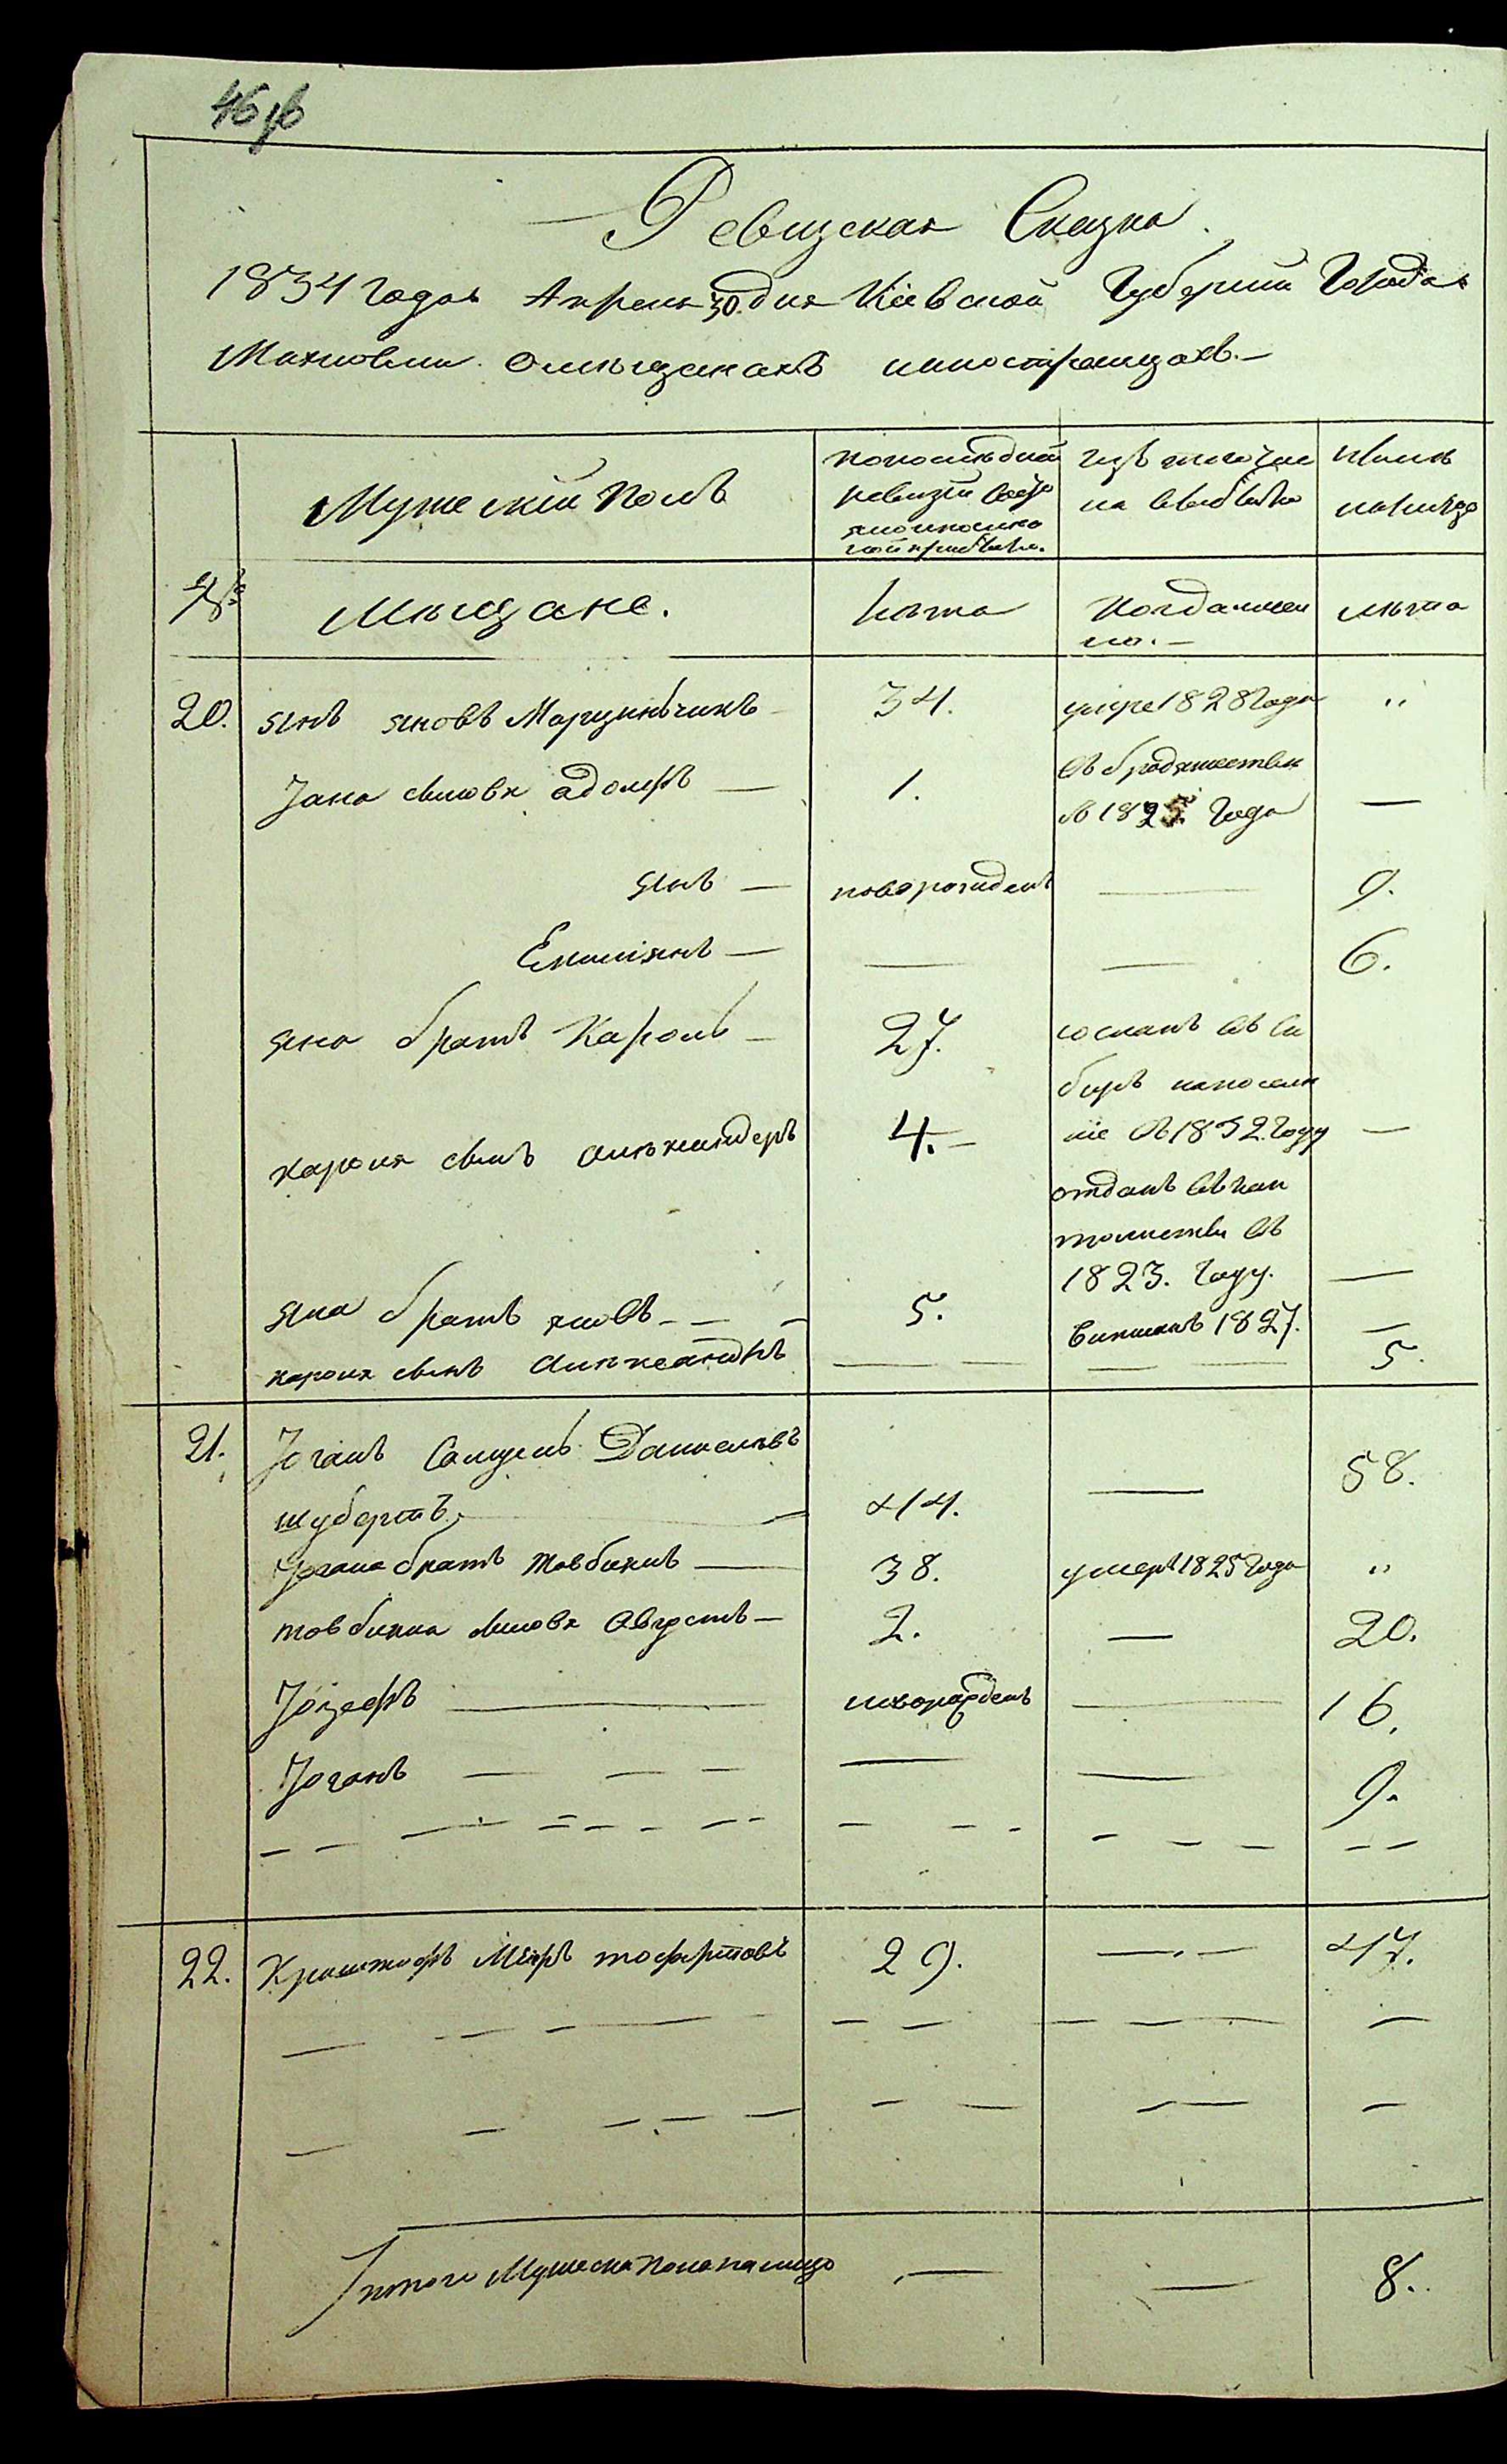 46 об
Ревизская Сказка
1834 года Апреля 30 дня Кіевской Губерніи Города
Махновки омѣщанахъ иностранцахъ.—
Мужескій полъ
попослѣдней ревизіи
изъ того числа выбыло
нынѣ налицо
№
Мѣщане.
лѣта
когдаименно.—
лѣта
20. янъ яновъ Марцинкѣвичъ 34. умре 1828 года "
Jана сыновя адольфъ — 1. въ бродяжествѣ
въ 1825. Года —
янъ — новорожденъ — 9.
Емиліянъ — — — 6.
яна братъ Кароль — 27. сосланъ въ Си
биръ напоселе
ніе въ 1832. Году —
кароля сынъ Александеръ 4.—
отданъ въ кан
тонисты въ
1823. Году. —
яна братъ яковъ - — - 5. 1827. —
кароля сынъ Александръ — — — — 5.
21. Jоганъ Самуель Даниеловъ
шубертъ — 44. — 58.
Jогана братъ товбиянъ — 38. умеръ 1825 Года "
товбияна сыновя Августъ — 2. — 20.
Jозефъ — новорожденъ — 16.
Jоганъ — — — — — 9.
22. Криштофъ 29. — . — 47.
Jтого Мужеска пола налицо — — 8.